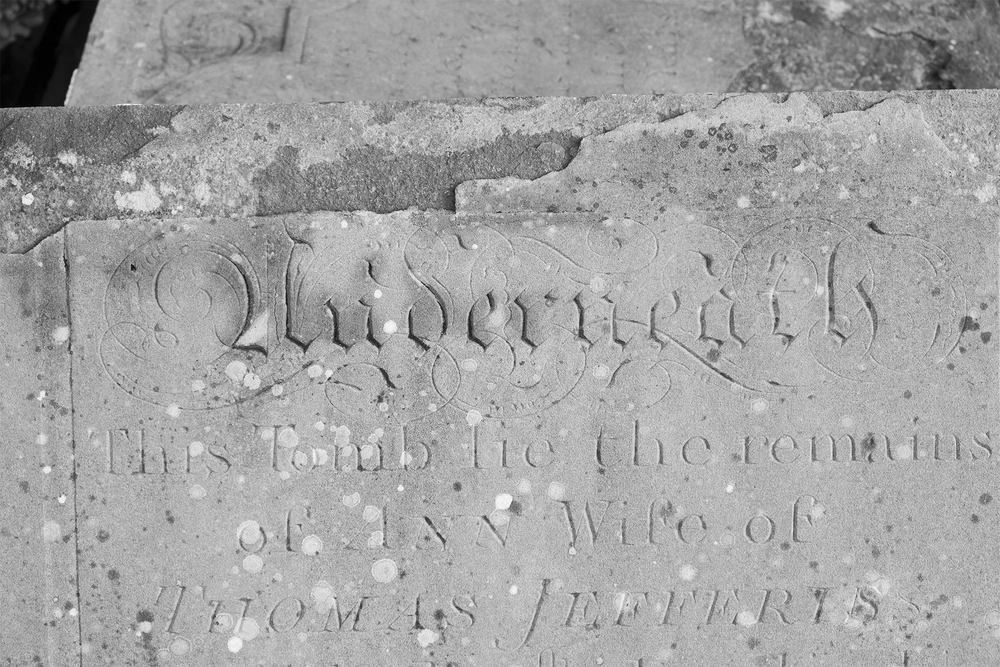 Underneath
This Tomb lie the remains
of ANN Wife of
THOMAS JEFFERISS